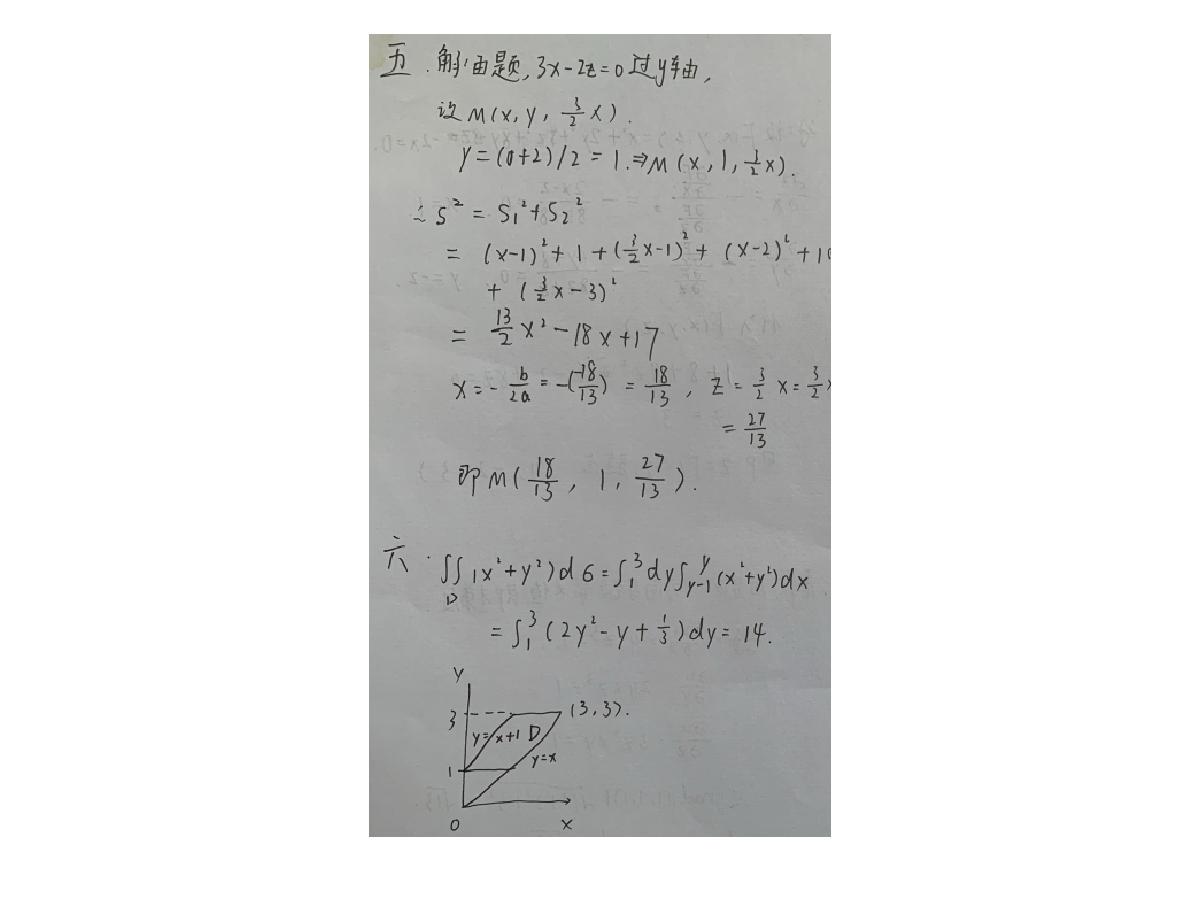 五.解:由题,3x-2z=0过y轴,
设M(x,y,3/2 x).
y=(0+2)/2=1.⇒M(x,1,3/2 x).
∴S²=S₁²+S₂²
=(x-1)²+1+(3/2 x-1)²+(x-2)²+1
+(3/2 x-3)²
=13/2 x²-18x+17
x=-b/2a=-(-18/13)=18/13,z=3/2 x=3/2
=27/13
即M(18/13,1,27/13).
六.∬_D(x²+y²)d6=∫₁³dy∫_{y-1}^{y}(x²+y²)dx
=∫₁³(2y²-y+1/3)dy=14.
y
3
(3,3).
y=x+1
D
y=x
1
0
x